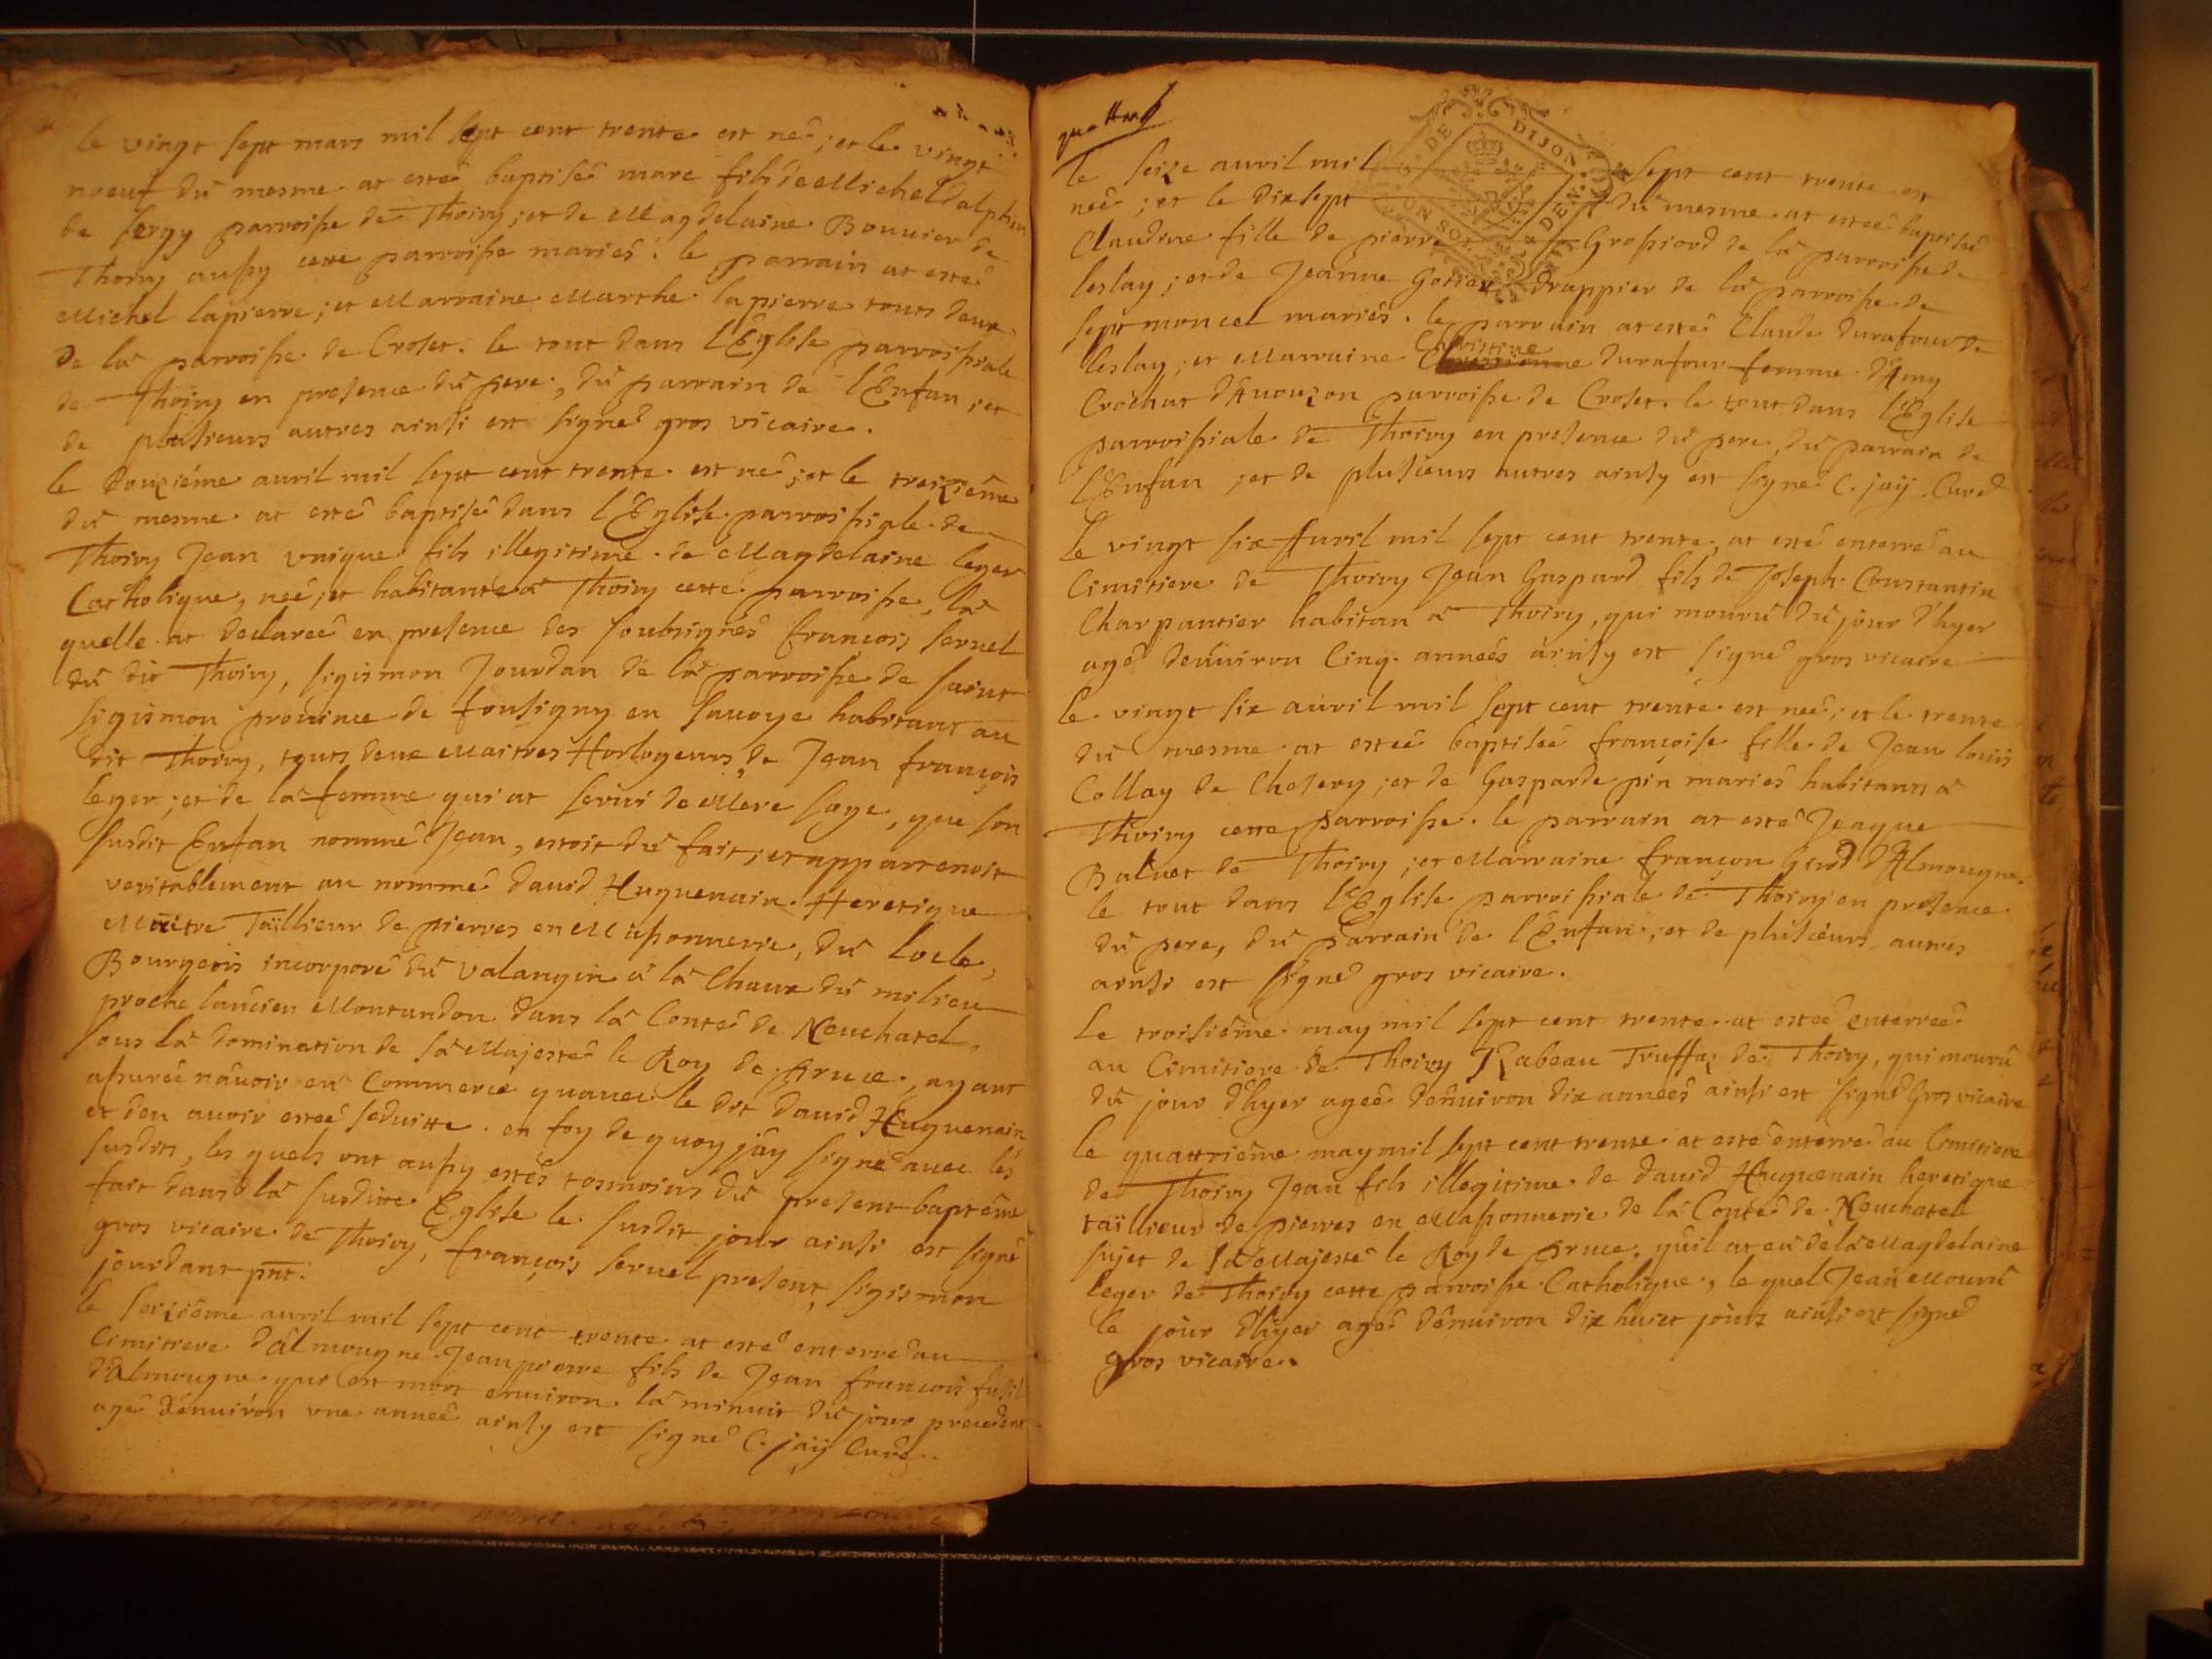 le vingt sept mars mil sept cent trente est né ; et le vingt
noeuf du mesme at esté baptisé marc fils de Michel dalphin
de sergy parroisse de Thoiry ; et de Magdelaine Bouvier de
Thoiry aussy cette parroisse mariés. le parrain at esté
Michel lapierre ; et Marraine Marthe lapierre touts deux
de la parroisse de Croset. le tout dans l'Eglise parroissiale
de Thoiry en presence du pere, du parrain de l'Enfan ; et
de plusieurs autres ainsi est signé gros vicaire.
le douziéme auril mil sept cent trente est né ; et le treiziéme
du mesme at esté baptisé dans l'Eglise parroissiale de
Thoiry Jean vnique fils illegitime de Magdelaine leger
Catholique, née, et habitante a Thoiry cette parroisse, la
quelle at declareé en presence des soubsignés françois seruel
du dit Thoiry, sigismon Jourdan de la parroisse de saint
sigismon prouince de fousigny en sauoye habitant au
dit Thoiry, touts deux Maitres Horlogeurs, de Jean françois
leger ; et de la femme qui at serui de Mere sage, que son
susdit Enfan nommé Jean, estoit du fait, et appartenoit
veritablement au nommé dauid Huguenain Heretique
Maitre Taillieur de pierres en Massonnerie, du Locle,
Bourgeois incorporé du valangin a la Chaux du milieu
proche l'ancien Montandon dans la Conteé de Neuchatel,
sous la domination de sa Majesté le Roy de pruce, ayant
assureé n'auoir eu Commerce qu'auec le dit dauid Huguenain
et d'en auoir esteé seduitte. en foy de quoy j'ay signé auec les
susdits, les quels ont aussy estés tesmoins du present baptéme
fait dans la susditte Eglise le susdit jour ainsi est signé
gros vicaire de Thoiry, françois seruel present, sigismon
jourdant pnt.
le seiziéme auril mil sept cent trente at esté enterré au
Cimitiere d'almougne Jean pierre fils de Jean françois
d'Almougne qui est mort enuiron la minuit du jour precedent
agé d'enuiron vne année ainsy est signé C. jaÿ Curé.
quattre
le seize auril mil sept cent trente est
neé ; et le dix sept du mesme at esteé baptiseé
Claudine fille de pierre Grossiord de la parroisse de
leslay ; et de Jeanne drappier de la parroisse de
septmoncel mariés. le parrain at esté Claude durafour de
leslay ; et Marraine Christine durafour femme d'Amy
Crochat d'Auouzon parroisse de Croset. le tout dans l'Eglise
parroissiale de Thoiry en presence du pere, du parrain de
l'Enfan ; et de plusieurs autres ainsy est signé C. jaÿ. Curé
Le vingt six Auril mil sept cent trente, at esté enterré au
Cimitiere de Thoiry Jean Gaspard fils de Joseph Constantin
Charpantier habitan a Thoiry, qui mouru du jour d'hyer
agé denuiron Cinq années ainsy est signé gros vicaire
le vingt six auril mil sept cent trente est neé ; et le trente
du mesme at esteé baptiseé françoise fille de Jean louis
Collay de Chesery ; et de Gasparde pin mariés habitants a
Thoiry cette parroisse. le parrain at esté Jeaque
Baluet de Thoiry ; et Marraine françon d'Almougne.
le tout dans l'Eglise parroissiale de Thoiry en presence
du pere, du parrain de l'Enfan ; et de plusieurs autres
ainsi est signé gros vicaire.
Le troisiéme may mil sept cent trente at esteé enterreé
au Cimitiere de Thoiry Truffaz de Thoiry, qui mouru
du jour d'hyer ageé denuiron dix années ainsi est signé Gros vicaire
le quattriéme may mil sept cent trente at esté enterré au Cimitiere
de Thoiry Jean fils illegitime de dauid Huguenain heretique
taillieur de pierres en Massonnerie de la Conteé de Neuchatel
sujet de sa Majesté le Roy de pruce, qu'il at eu de la Magdelaine
leger de Thoiry cette parroisse Catholique, le quel Jean Mouru
le jour d'hyer agé denuiron dix huict jours ainsi est signé
gros vicaire.
DE DIJON